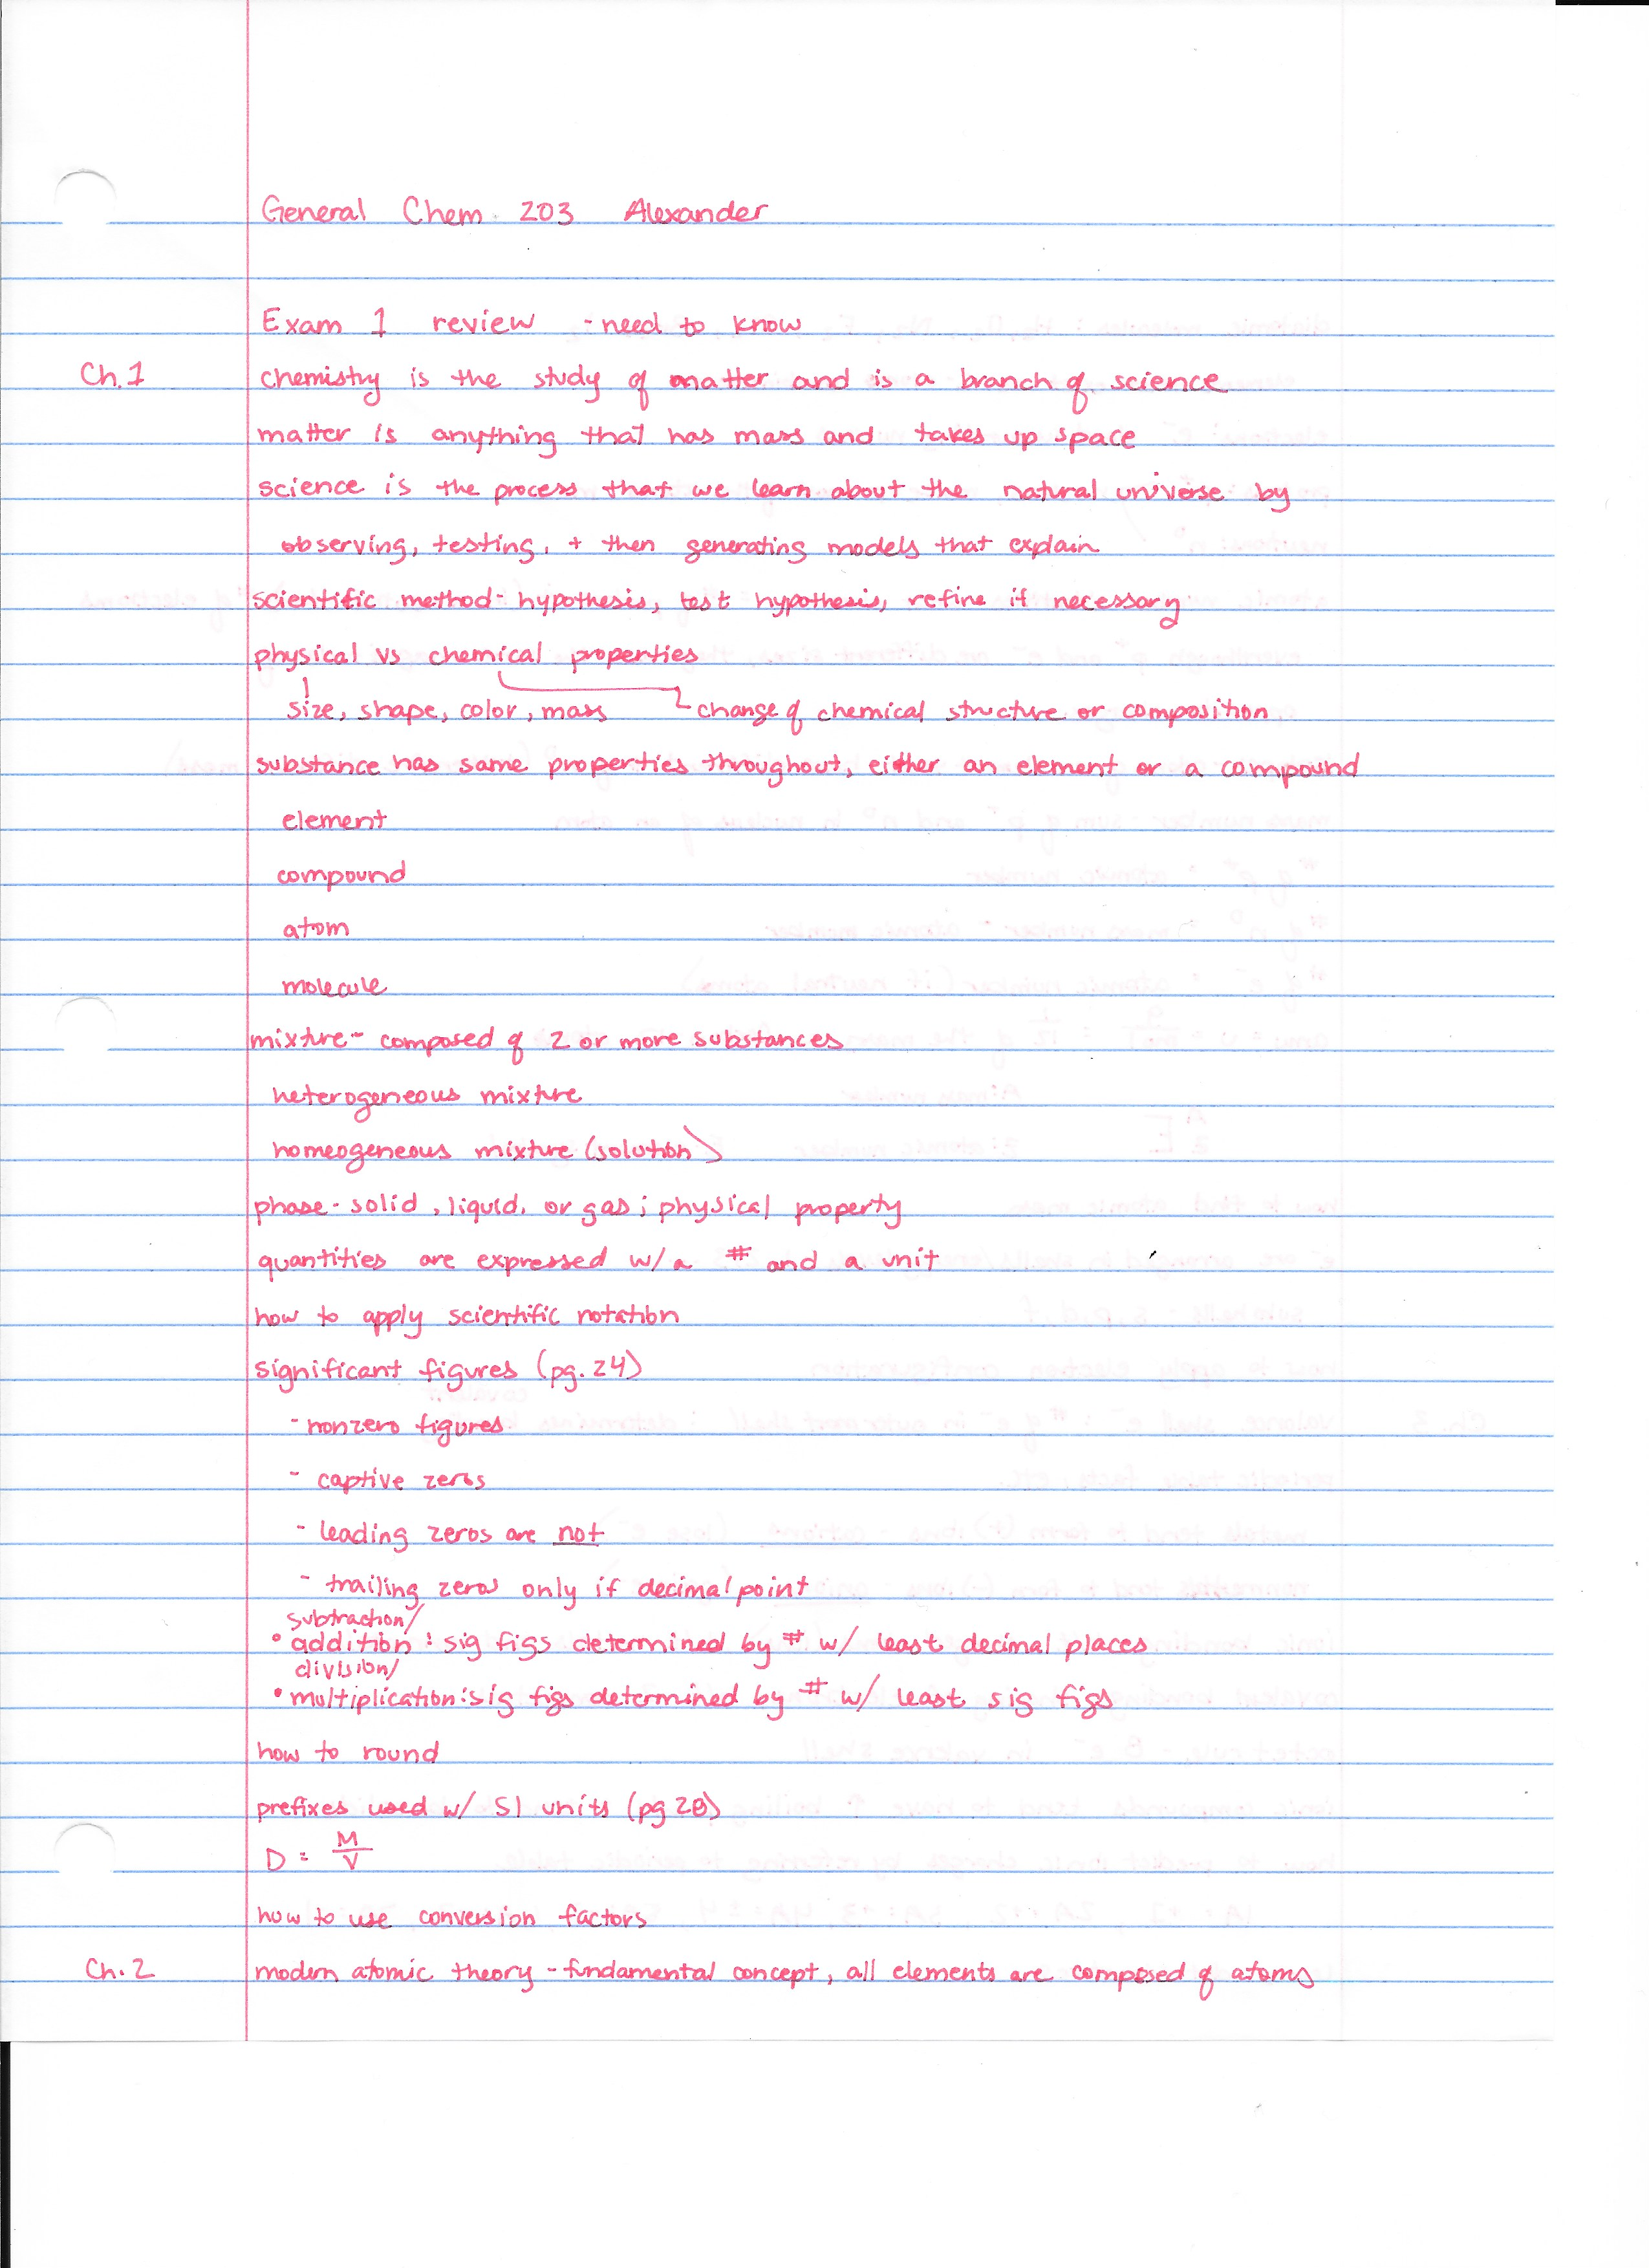 General Chem. 203 Alexander
Exam 1 review - need to know
Ch.1 chemistry is the study of matter and is a branch of science
matter is anything that has mass and takes up space
science is the process that we learn about the natural universe by
observing, testing, + then generating models that explain
scientific method - hypothesis, test hypothesis, refine if necessary
physical vs chemical properties
size, shape, color, mass change of chemical structure or composition
substance has same properties throughout, either an element or a compound
element
compound
atom
molecule
mixture - composed of 2 or more substances
heterogeneous mixture
homeogeneous mixture (solution)
phase - solid, liquid, or gas; physical property
quantities are expressed w/a # and a unit
how to apply scientific notation
significant figures (pg. 24)
- nonzero figures
- captive zeros
- leading zeros are not
- trailing zeros only if decimal point
subtraction/
• addition : sig figs determined by # w/ least decimal places
division/
• multiplication: sig figs determined by # w/ least sig figs
how to round
prefixes used w/ SI units (pg 28)
D = M/V
how to use conversion factors
Ch.2 modern atomic theory - fundamental concept, all elements are composed of atoms